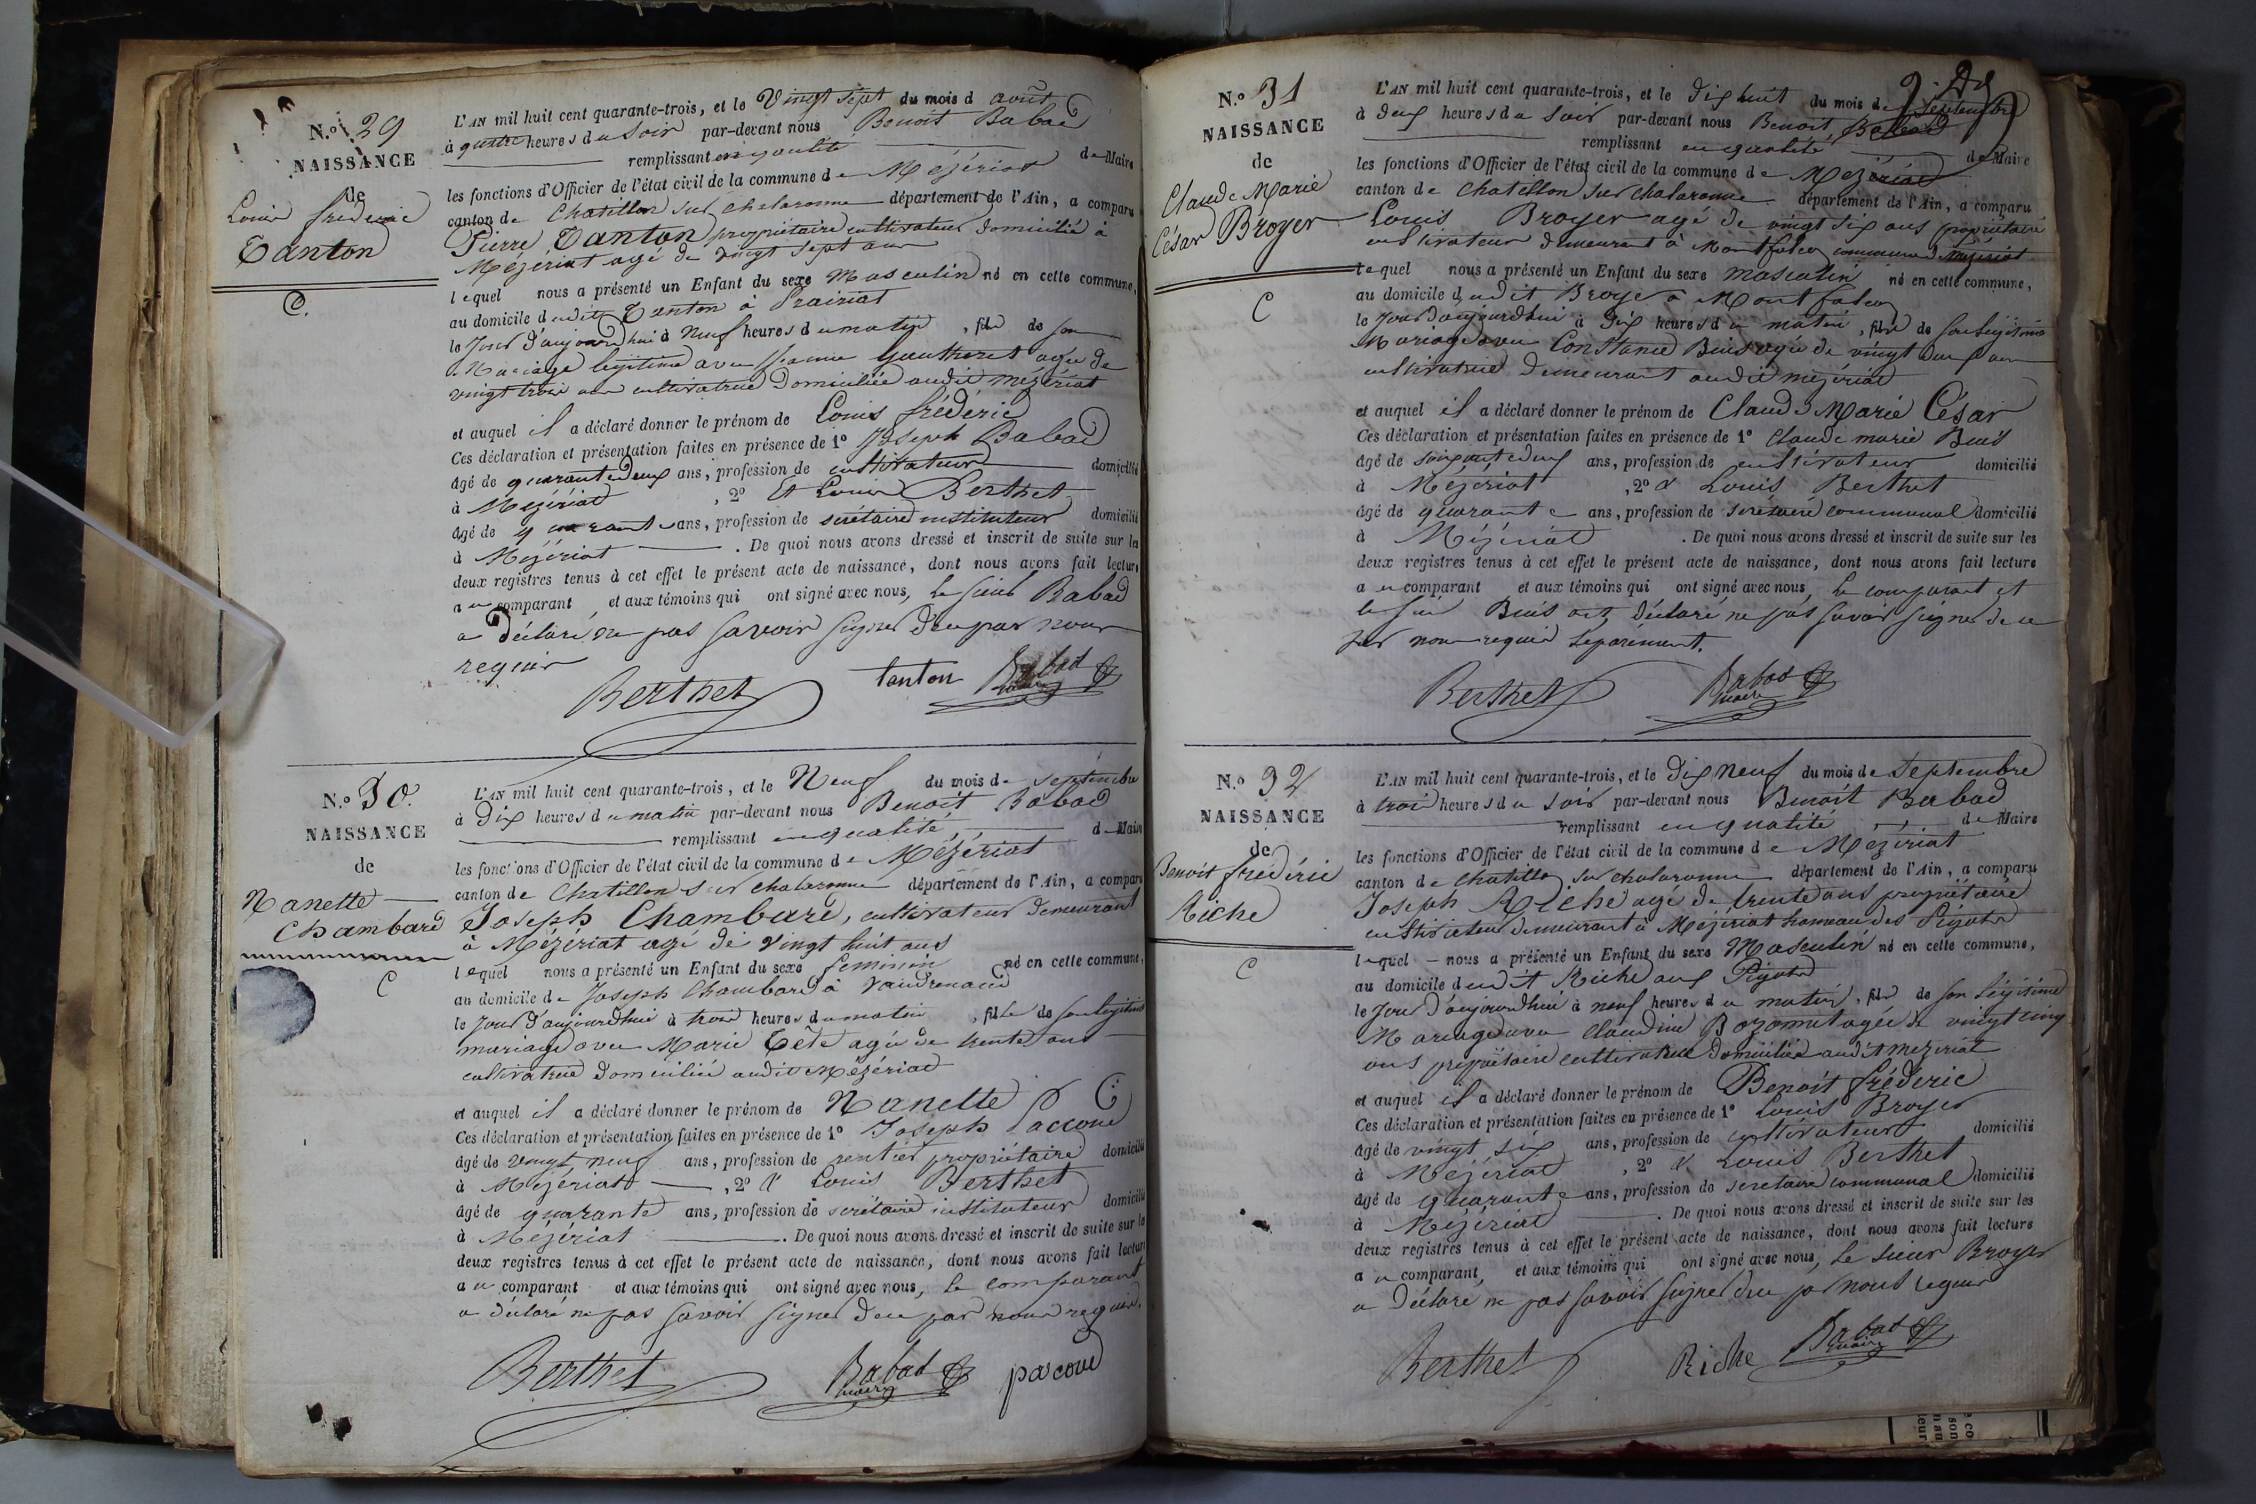 N.º 29
NAISSANCE
de
Louis frédéric
Tanton
C.
L'AN mil huit cent quarante-trois, et le Vingt sept du mois d août
à quatre heures du Soir par-devant nous Benoit Babad
remplissant en qualité de Maire
les fonctions d'Officier de l'état civil de la commune de Mézériat
canton de Chatillon sur chalaronne département de l'Ain, a comparu
Pierre Tanton propriétaire cultivateur domicilié à
Mézériat agé de vingt sept ans
lequel nous a présenté un Enfant du sexe Masculin né en cette commune,
au domicile dudit Tanton à Prairiat
le Jour d'aujourdhui à Neuf heures du matin, fils de son
Mariage légitime avec Gautheret agée de
vingt trois ans cultivatrice domiciliée audit mézériat
et auquel il a déclaré donner le prénom de Louis frédéric
Ces déclaration et présentation faites en présence de 1º Joseph Babad
âgé de quarantedeux ans, profession de cultivateur domicilié
à Mézériat, 2º Et Louis Berthet
âgé de quarante ans, profession de secrétaire instituteur domicilié
à Mézériat. De quoi nous avons dressé et inscrit de suite sur les
deux registres tenus à cet effet le présent acte de naissance, dont nous avons fait lecture
au comparant et aux témoins qui ont signé avec nous, le sieur Babad
a déclaré ne pas savoir signer de ce par nous
requis
Berthet tanton Babad maire
N.º 30.
NAISSANCE
de
Nanette
Chambard
C
L'AN mil huit cent quarante-trois, et le Neuf du mois de septembre
à Dix heures du matin par-devant nous Benoit Babad
remplissant en qualité de Maire
les fonctions d'Officier de l'état civil de la commune de Mézériat
canton de Chatillon sur chalaronne département de l'Ain, a comparu
Joseph Chambard, cultivateur demeurant
à Mézériat agé de vingt huit ans
lequel nous a présenté un Enfant du sexe feminin né en cette commune,
au domicile de Joseph Chambard à Vaudrenaud
le Jour d'aujourdhui à trois heures du matin, fille de son légitime
mariage avec Marie Tête agée de trente ans
cultivatrice domiciliée audit Mézériat
et auquel il a déclaré donner le prénom de Nanette
Ces déclaration et présentation faites en présence de 1º Joseph Paccoud
âgé de vingt neuf ans, profession de rentier propriétaire domicilié
à Mézériat, 2º & Louis Berthet
âgé de quarante ans, profession de secrétaire instituteur domicilié
à Mézériat. De quoi nous avons dressé et inscrit de suite sur les
deux registres tenus à cet effet le présent acte de naissance, dont nous avons fait lecture
au comparant et aux témoins qui ont signé avec nous, le comparant
a déclaré ne pas savoir signer de ce par nous requis.
Berthet Babad maire pacoud
N.º 31
NAISSANCE
de
Claude Marie
César Broyer
C
L'AN mil huit cent quarante-trois, et le dix huit du mois de septembre
à deux heures du soir par-devant nous Benoit Babad
remplissant en qualité de Maire
les fonctions d'Officier de l'état civil de la commune de Mézériat
canton de chatillon sur chalaronne département de l'Ain, a comparu
Louis Broyer agé de vingt six ans propriétaire
cultivateur demeurant à Montfalcon commune de mézériat
lequel nous a présenté un Enfant du sexe masculin né en cette commune,
au domicile dudit Broyer à Montfalcon
le Jour daujourdhui à dix heures du matin, fils de son légitime
Mariage avec Constance Buis agée de vingt deux ans
cultivatrice demeurant audit mézériat
et auquel il a déclaré donner le prénom de Claude Marie César
Ces déclaration et présentation faites en présence de 1º Claude marie Buis
âgé de soixantedeux ans, profession de cultivateur domicilié
à Mézériat, 2º & Louis Berthet
âgé de quarante ans, profession de secrétaire communal domicilié
à Mézériat. De quoi nous avons dressé et inscrit de suite sur les
deux registres tenus à cet effet le présent acte de naissance, dont nous avons fait lecture
au comparant et aux témoins qui ont signé avec nous, le comparant et
le sieur Buis ont déclaré ne pas savoir signer de ce
par nous requis séparément.
Berthet Babad maire
N.º 32
NAISSANCE
de
Benoit frédéric
Riche
C
L'AN mil huit cent quarante-trois, et le dix neuf du mois de Septembre
à trois heures du soir par-devant nous Benoit Babad
remplissant en qualité de Maire
les fonctions d'Officier de l'état civil de la commune de Mézériat
canton de chatillon sur chalaronne département de l'Ain, a comparu
Joseph Riche agé de trente ans propriétaire
cultivateur demeurant à Mézériat hameau des
lequel nous a présenté un Enfant du sexe Masculin né en cette commune,
au domicile dudit Riche aux
le Jour d'aujourdhui à neuf heures du matin, fils de son légitime
Mariage avec Claudine Bozonnet agée de vingt cinq
ans propriétaire cultivatrice domiciliée audit mézériat
et auquel il a déclaré donner le prénom de Benoit frédéric
Ces déclaration et présentation faites en présence de 1º Louis Broyer
âgé de vingt six ans, profession de cultivateur domicilié
à Mézériat, 2º & Louis Berthet
âgé de quarante ans, profession de secrétaire communal domicilié
à Mézériat. De quoi nous avons dressé et inscrit de suite sur les
deux registres tenus à cet effet le présent acte de naissance, dont nous avons fait lecture
au comparant et aux témoins qui ont signé avec nous, le sieur Broyer
a déclaré ne pas savoir signer de ce par nous requis
Berthet Riche Babad maire